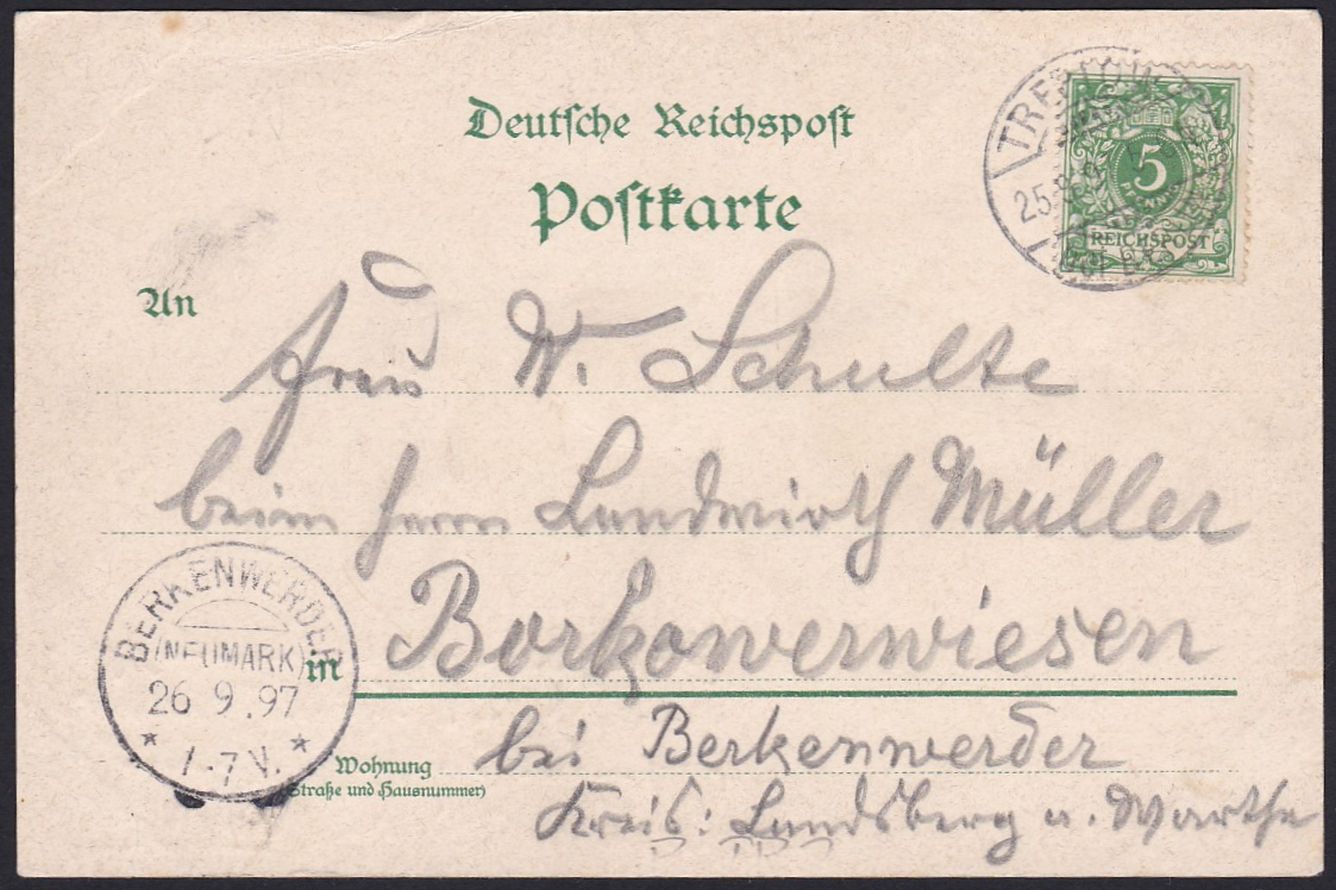 Deutsche Reichspost
Postkarte
TREPTOW
25.9.
5
PFENNIG
REICHSPOST
An
Frau W. Schulte
beim Herrn Landwirth Müller
in Borkowerwiesen
BERKENWERDER
(NEUMARK)
26 9.97
* 1-7 V. *
Wohnung bei Berkenwerder
(Straße und Hausnummer)
Kreis: Landsberg a. Warthe